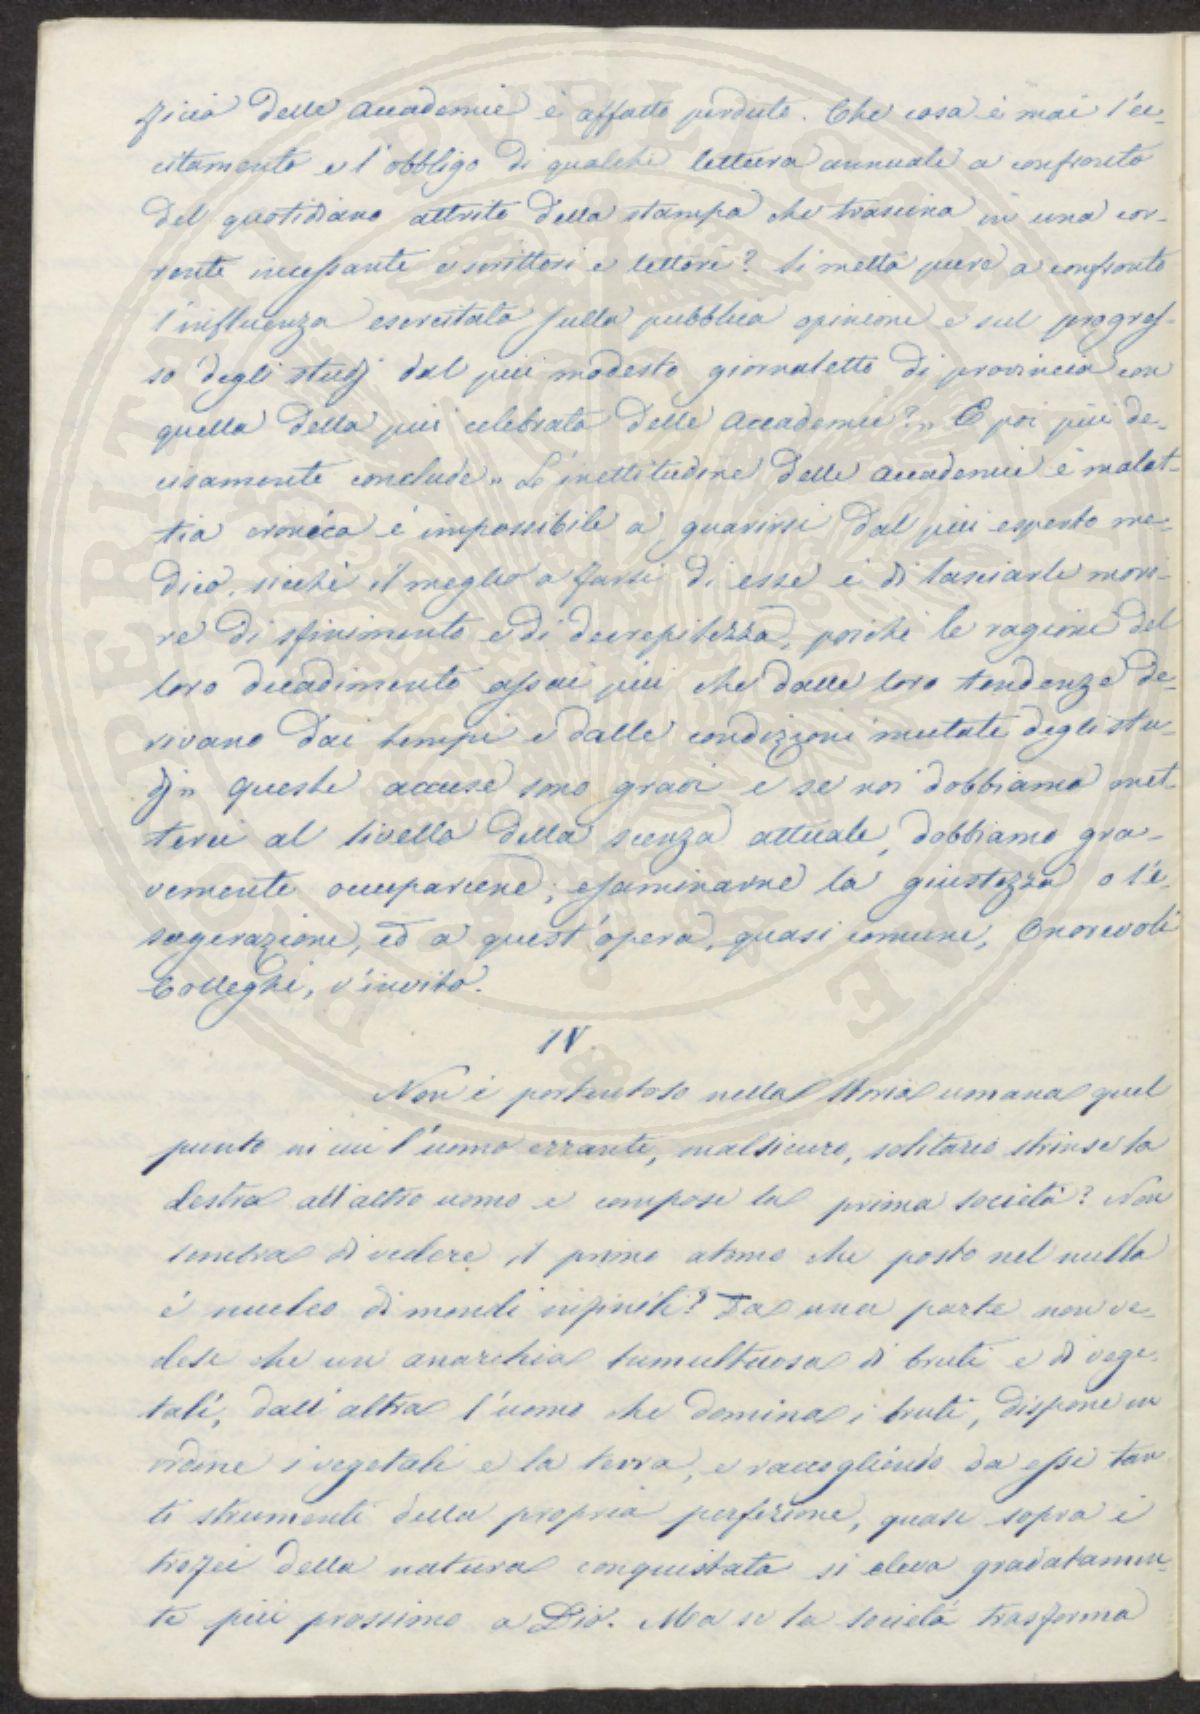 ficio delle Accademie è affatto perduto. Che cosa è mai l'ec-
citamento e l'obbligo di qualche lettura annuale a confronto
del quotidiano attrito della stampa che trascina in una cor-
rente incessante e scrittori e lettori? Si metta pure a confronto
l'influenza esercitata sulla pubblica opinione e sul progres-
so degli studj dal più modesto giornaletto di provincia con
quella della più celebrata delle Accademie?" E poi più de-
cisamente conclude "L'inettitudine delle Accademie è malat-
tia cronica è impossibile a guarirsi dal più esperto me-
dico, sicchè il meglio a farsi di esse è di lasciarle mori-
re di sfinimento e di decrepitezza, poichè le ragioni del
loro decadimento assai più che dalle loro tendenze de-
rivano dai tempi e dalle condizioni mutate degli stu-
dj" Queste accuse sono gravi e se noi dobbiamo met-
terci al livello della scenza attuale, dobbiamo gra-
vemente occuparcene; esaminarne la giustezza o l'e-
sagerazione, ed a quest'opera, quasi comune, Onorevoli
Colleghi, v'invito.
IV.
Non è portentoso nella storia umana quel
punto in cui l'uomo errante, malsicuro, solitario strinse la
destra all'altro uomo e compose la prima società? Non
sembra di vedere il primo atomo che posto nel nulla
è nucleo di mondi infiniti? Da una parte non ve-
desi che un anarchia tumultuosa di bruti e di vege-
tali, dall'altra l'uomo che domina i bruti, dispone in
ordine i vegetali e la terra, e raccogliendo da essi tan-
ti strumenti della propria perfezione, quasi sopra i
trofei della natura conquistata si eleva gradatamen-
te più prossimo a Dio. Ma se la società trasforma